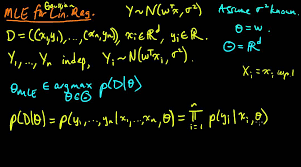 MLE for Lin. Reg. Y ~ N(wᵀx, σ²) Assume σ² known.
D = ((x₁,y₁),...,(xₙ,yₙ)), xᵢ∈ℝᵈ, yᵢ∈ℝ. θ = w.
Y₁,...,Yₙ indep, Yᵢ ~ N(wᵀxᵢ, σ²). Θ = ℝᵈ
Xᵢ = xᵢ wp 1
θ_MLE ∈ argmax_{θ∈Θ} p(D|θ)
p(D|θ) = p(y₁,...,yₙ|x₁,...,xₙ,θ) = ∏ᵢ₌₁ⁿ p(yᵢ|xᵢ,θ)